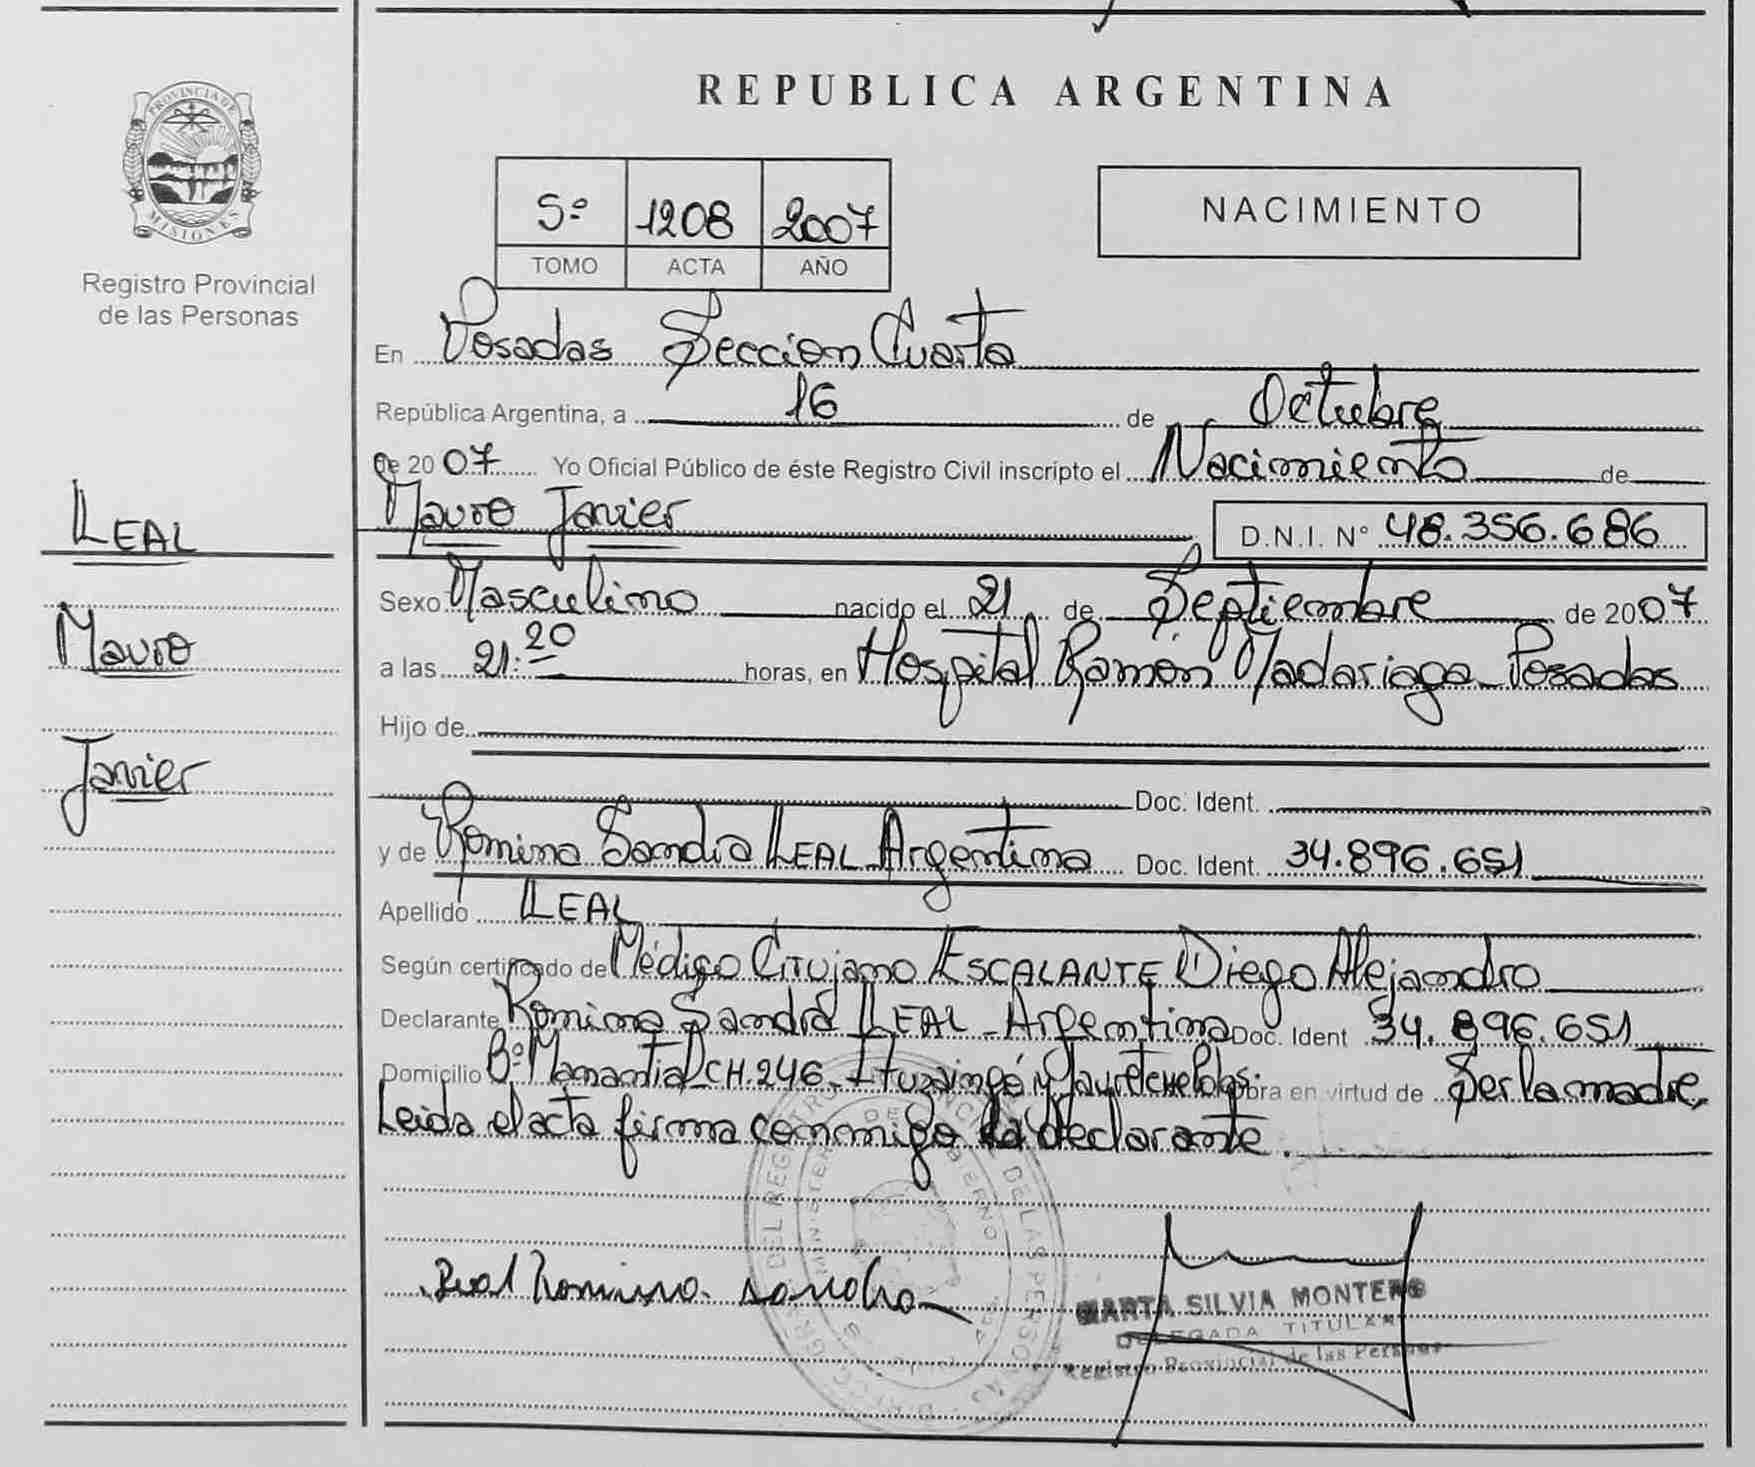 PROVINCIA DE
MISIONES
Registro Provincial
de las Personas
LEAL
Mauro
Javier
REPUBLICA ARGENTINA
5º 1208 2007
TOMO ACTA AÑO
NACIMIENTO
En Posadas Seccion Cuarta
República Argentina, a 16 de Octubre
de 2007 Yo Oficial Público de éste Registro Civil inscripto el Nacimiento de
Mauro Javier D.N.I. Nº 48.356.686
Sexo Masculino nacido el 21 de Septiembre de 2007
a las 21:20 horas, en Hospital Ramón Madariaga - Posadas
Hijo de
Doc. Ident.
y de Romina Sandra LEAL Argentina Doc. Ident. 34.896.651
Apellido LEAL
Según certificado de Médico Cirujano ESCALANTE Diego Alejandro
Declarante Romina Sandra LEAL - Argentina Doc. Ident 34.896.651
Domicilio Bº Manantial CH.246 - Ituzaingó y Jauretche Pdas. obra en virtud de Ser la madre,
Leida el acta firma conmigo la declarante.
Leal Romina Sandra
MARTA SILVIA MONTERO
DELEGADA TITULAR
Registro Provincial de las Personas